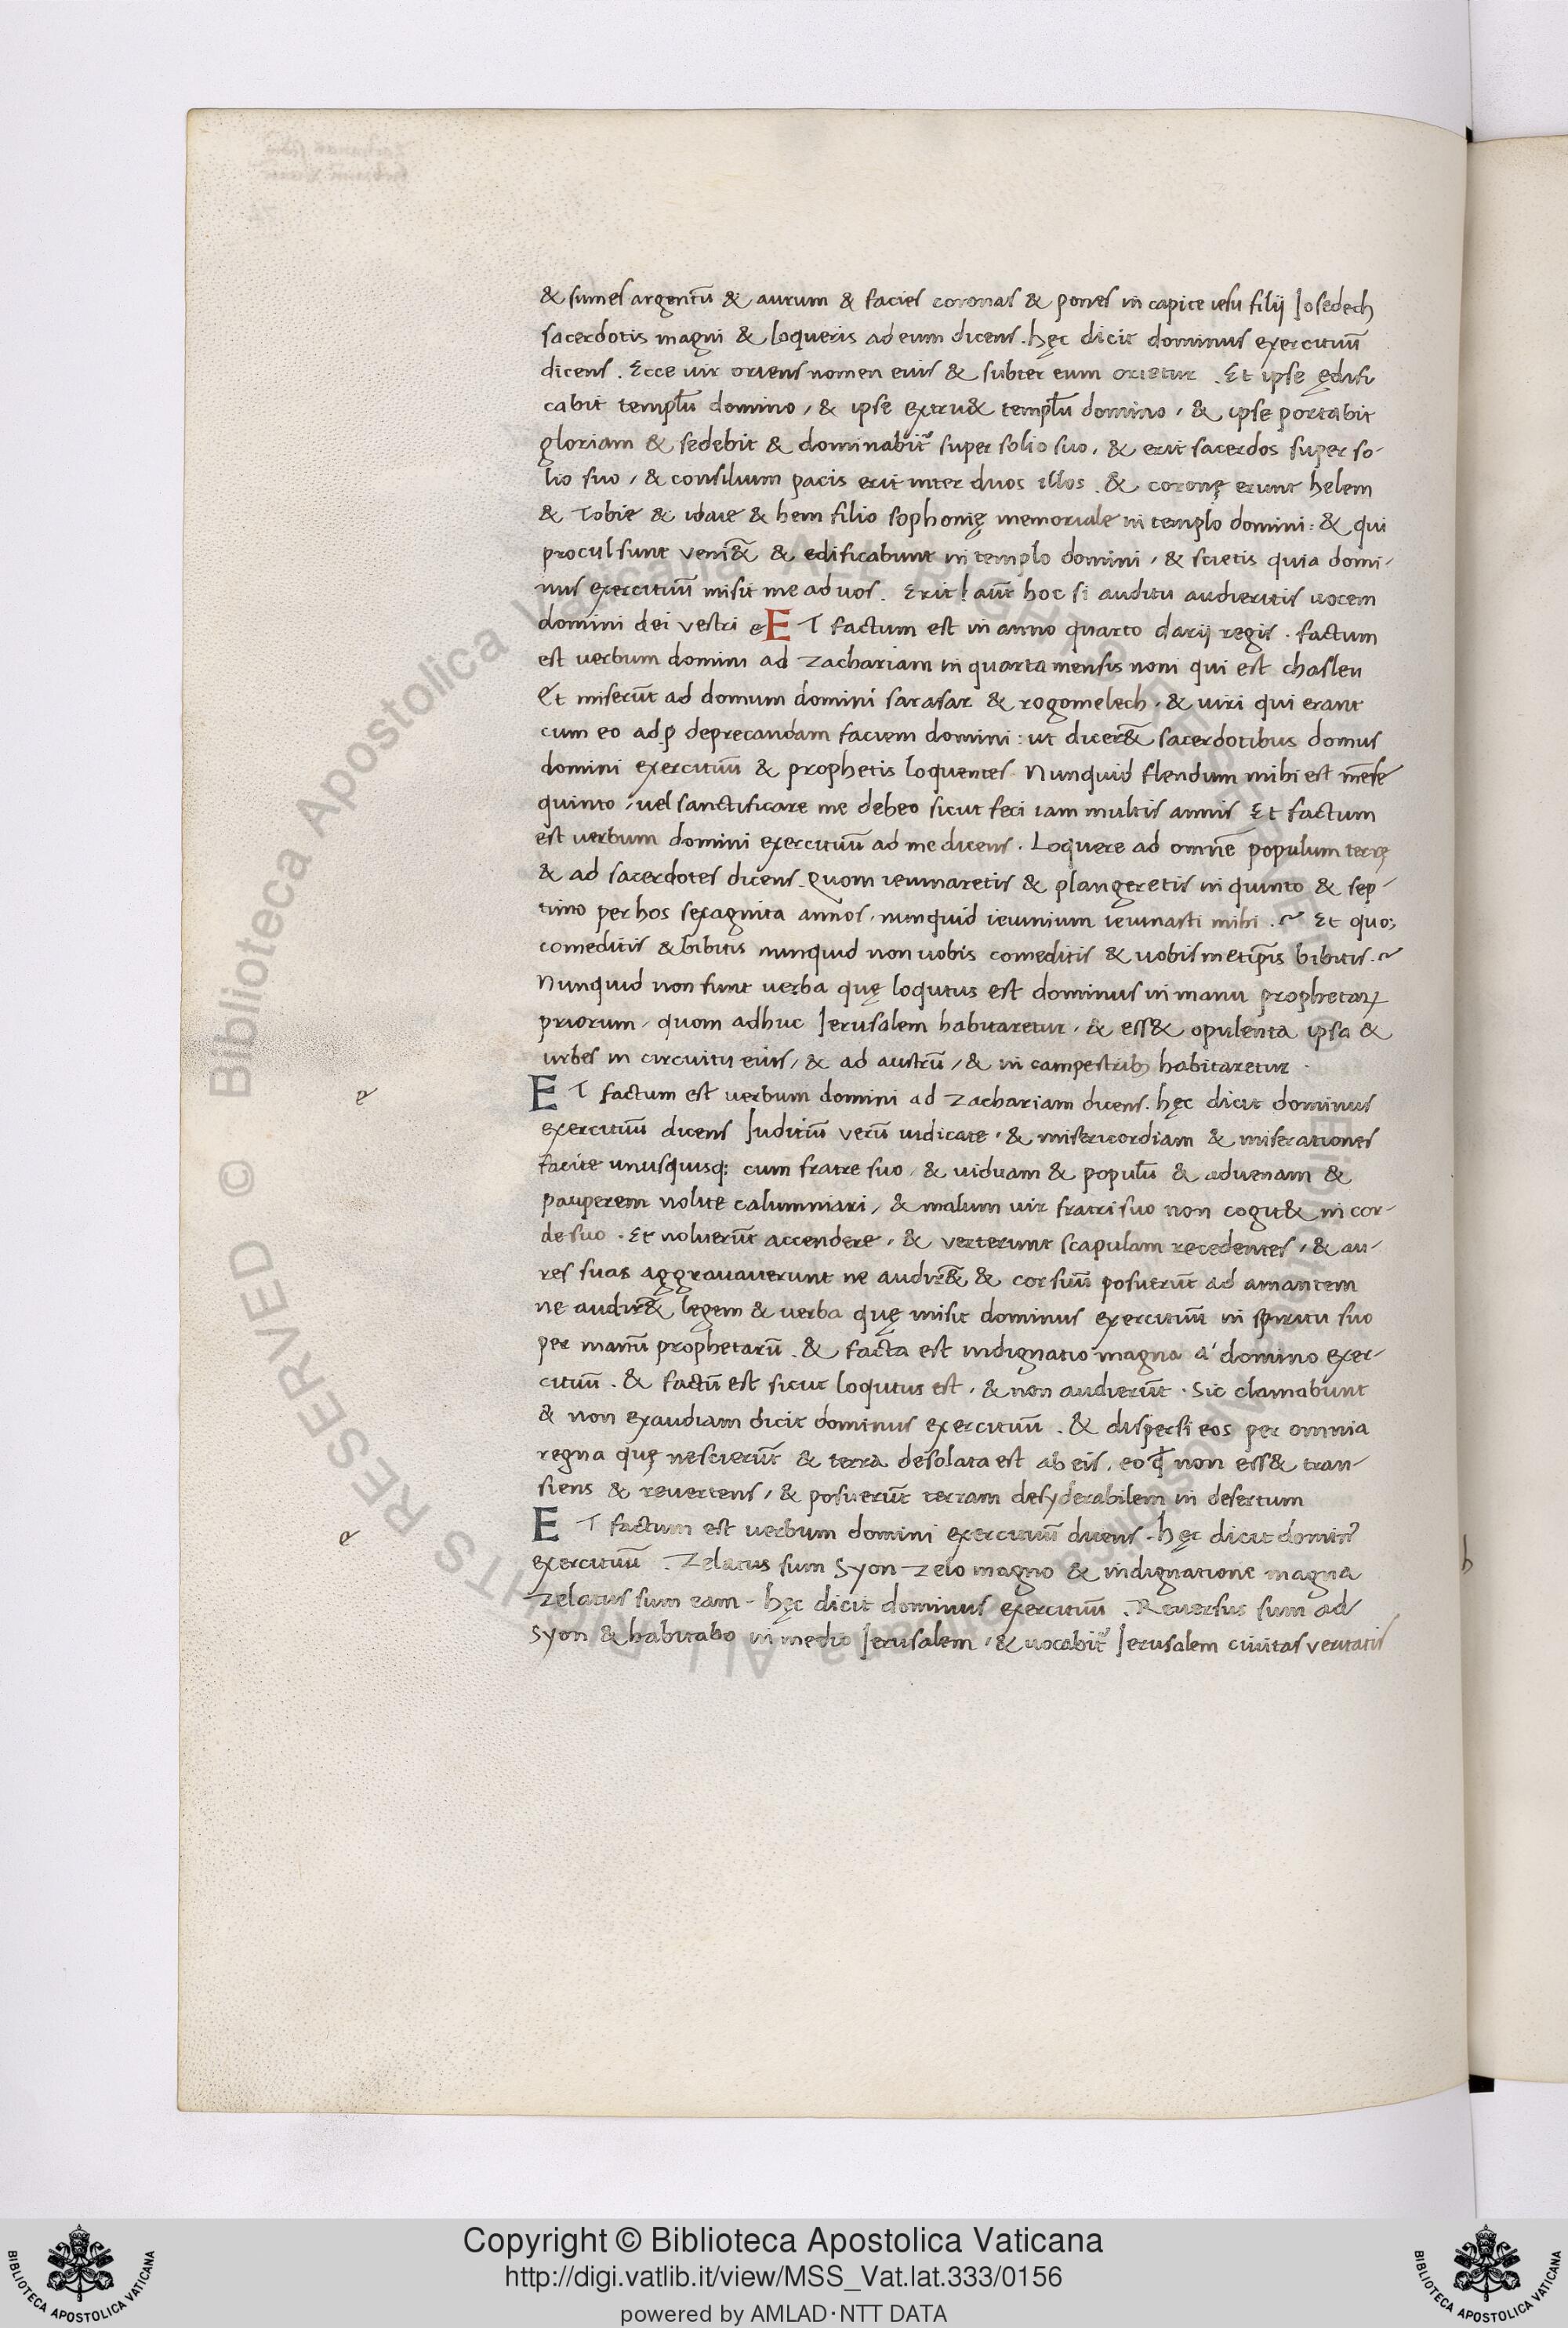 & sumes argentū & aurum & facies coronas & pones in capite iesu filij Iosedech
sacerdotis magni & loqueris ad eum dicens. hęc dicit dominus exercituū
dicens. Ecce uir oriens nomen eius & subter eum orietur. Et ipse ędifi
cabit templū domino, & ipse extru& templū domino, & ipse portabit
gloriam & sedebit & dominabit᷑ super solio suo, & erit sacerdos super so-
lio suo, & consilium pacis erit inter duos illos. & coronę erunt helem
& Tobie & idaie & hem filio sophonię memoriale in templo domini: & qui
procul sunt veni&̄ & edificabunt in templo domini, & scietis quia domi-
nus exercituū misit me ad uos. Erit! aūt hoc si auditu audieritis uocem
domini dei vestri e ET factum est in anno quarto darij regis. factum
est uerbum domini ad zachariam in quarta mensis noni qui est chasleu
Et miserūt ad domum domini sarasar & rogomelech, & uiri qui erant
cum eo ad ꝑ deprecandam faciem domini: ut dicer&̄ sacerdotibus domus
domini exercituū & prophetis loquentes. Nunquid flendum mihi est mēse
quinto, uel sanctificare me debeo sicut feci iam multis annis Et factum
est uerbum domini exercituū ad me dicens. Loquere ad omnē populum terrę
& ad sacerdotes dicens. Quom ieiunaretis & plangeretis in quinto & sep-
timo per hos sexaginta annos, nunquid ieiunium ieiunasti mihi. Et quo;
comeditis & bibitis nunquid non uobis comeditis & uobismetip̄is bibitis.
Nunquid non sunt uerba quę loqutus est dominus in manu prophetaꝝ
priorum, quom adhuc Ierusalem habitaretur, & ess& opulenta ipsa &
urbes in circuitu eius, & ad austrū, & in campestrib; habitaretur.
e
ET factum est uerbum domini ad zachariam dicens. hęc dicit dominus
exercituū dicens Iuditiū verū iudicate, & misericordiam & miserationes
facite unusquisq; cum fratre suo, & uiduam & populū & aduenam &
pauperem nolite calumniari, & malum uir fratri suo non cogit& in cor-
de suo. Et noluerūt accendere, & verterunt scapulam recedentes, & au-
res suas aggrauauerunt ne audir&̄ & cor suū posuerūt ad amantem
ne audir&̄ legem & uerba quę misit dominus exercituū in spiritu suo
per manū prophetarū. & facta est indignatio magna a' domino exer-
cituū. & factū est sicut loqutus est, & non audierūt. Sic clamabunt
& non exaudiam dicit dominus exercituū. & dispersi eos per omnia
regna quę nescierūt & terra desolata est ab eis, eo qđ non ess& tran-
siens & reuertens, & posuerūt terram desyderabilem in desertum
e
ET factum est uerbum domini exercituū dicens. hęc dicit domin᷒
exercituū. Zelatus sum Syon zelo magno & indignatione magna
zelatus sum eam. hęc dicit dominus exercituū. Reuersus sum ad
Syon & habitabo in medio Ierusalem, & uocabit᷑ Ierusalem ciuitas veritatis
h
© Biblioteca Apostolica Vaticana ALL RIGHTS RESERVED
BIBLIOTECA APOSTOLICA VATICANA
Copyright © Biblioteca Apostolica Vaticana
http://digi.vatlib.it/view/MSS_Vat.lat.333/0156
powered by AMLAD·NTT DATA
BIBLIOTECA APOSTOLICA VATICANA